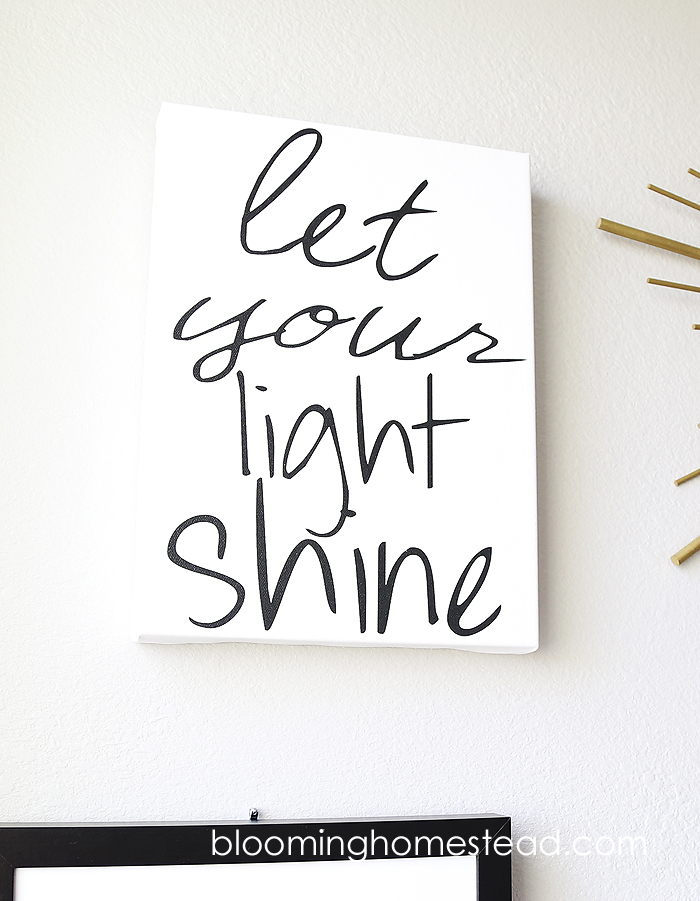 let
your
light
shine
bloominghomestead.com